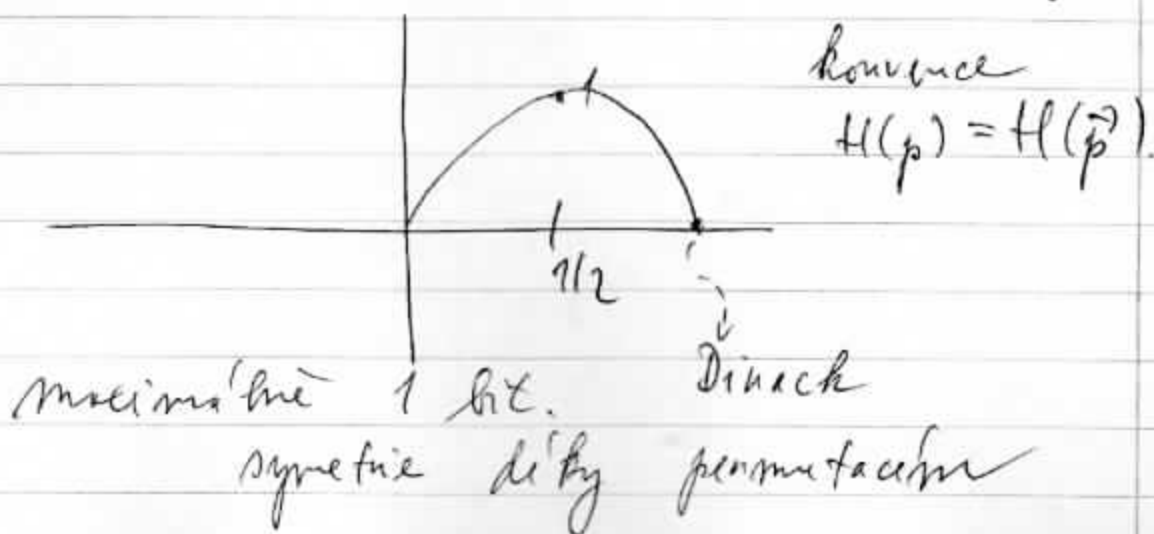 konvence
H(p) = H(p⃗).
1
1/2
Dirack
maximálně 1 bit.
symetrie díky permutacím